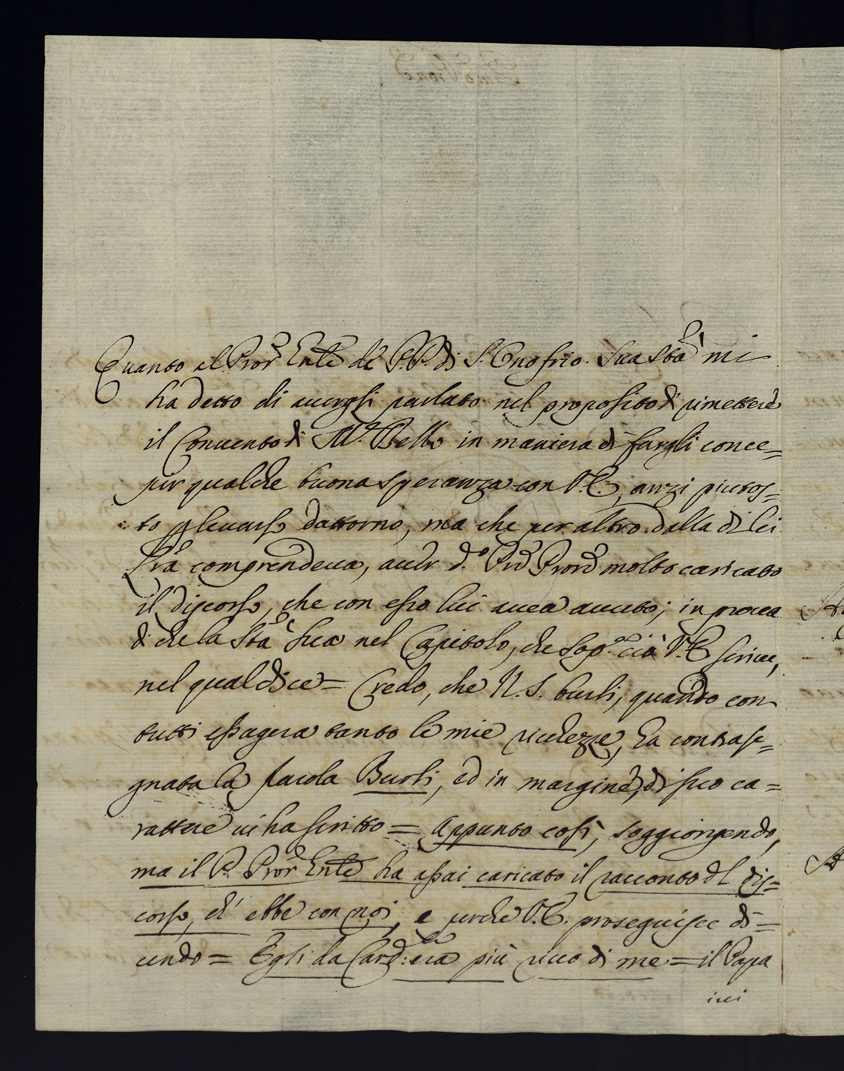 Quanto al Pror.e Gnle de P.P. di S. Onofrio. Sua Stà mi
ha detto di avergli parlato nel proposito di rimettere
il Convento di M.e Bello in maniera di fargli conce=
pir qualche buona speranza con V.E, anzi piutos=
to p levarso dattorno, ma che per altro dalla di lei
Lra comprendeva, aver d.o Prd Prore molto caricato
il discorso, che con esso lei avea avuto; in prova
di che la Stà Sua nel Capitolo, che sop.a ciò V.E scrive,
nel qual dice = Credo, che N.S. burli, quando con
tutti essagera tanto le mie richezze, ha contrase=
gnata la parola Burli, ed in margine, di suo ca=
rattere vi ha scritto = appunto così, soggiongendo,
ma il P. Pror.e Gnle ha assai caricato il racconto del dis=
corso, ch' ebbe con noi, e perche V.E. proseguisce di=
cendo = Egli da Card: era più ricco di me = il Papa
ivi